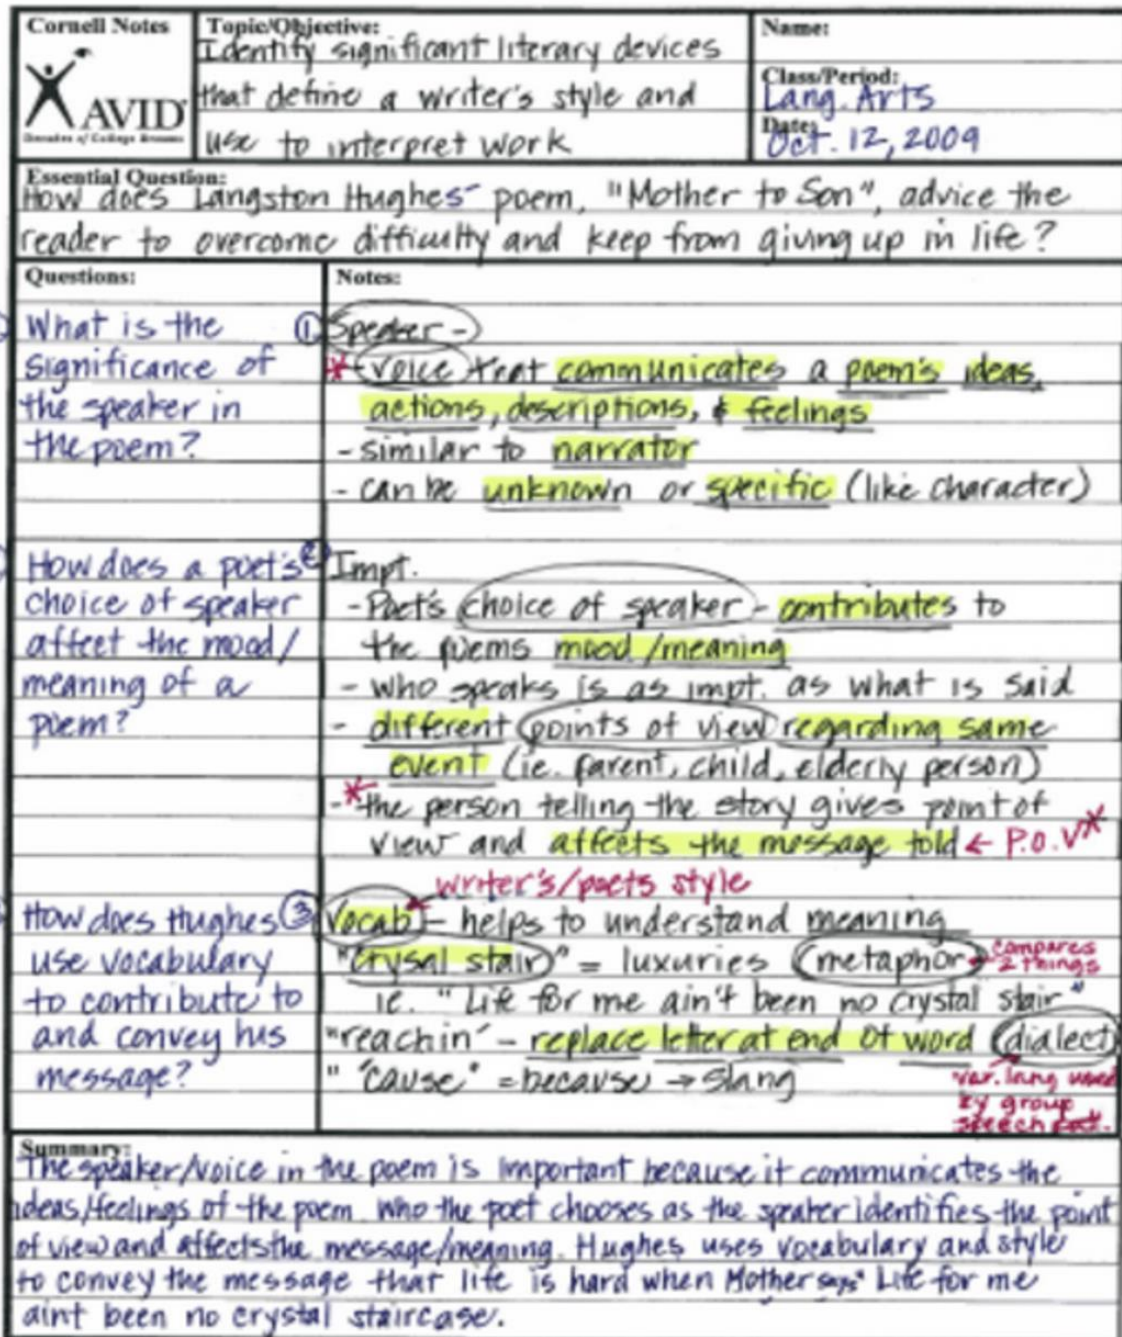 Cornell Notes
AVID
Decades of College Dreams
Topic/Objective:
Identify significant literary devices
that define a writer's style and
use to interpret work
Name:
Class/Period:
Lang. Arts
Date:
Oct. 12, 2009
Essential Question:
How does Langston Hughes' poem, "Mother to Son", advice the
reader to overcome difficulty and keep from giving up in life?
Questions:
What is the
significance of
the speaker in
the poem?
How does a poet's
choice of speaker
affect the mood/
meaning of a
poem?
How does Hughes
use vocabulary
to contribute to
and convey his
message?
Notes:
① Speaker -
* - voice that communicates a poem's ideas,
actions, descriptions, & feelings
- similar to narrator
- can be unknown or specific (like character)
② Impt.
- Poet's choice of speaker - contributes to
the poems mood/meaning
- who speaks is as impt. as what is said
- different points of view regarding same
event (ie. parent, child, elderly person)
- * the person telling the story gives point of
view and affects the message told ← P.O.V *
writer's/poets style
③ Vocab - helps to understand meaning
"Crysal stair" = luxuries metaphor compares
2 things
ie. "Life for me ain't been no crystal stair"
"reachin' - replace letter at end of word dialect
" 'cause" = because → slang
var. lang used
by group
speech pat.
Summary:
The speaker/voice in the poem is important because it communicates the
ideas/feelings of the poem. Who the poet chooses as the speaker identifies the point
of view and affects the message/meaning. Hughes uses vocabulary and style
to convey the message that life is hard when Mother says" Life for me
aint been no crystal staircase.